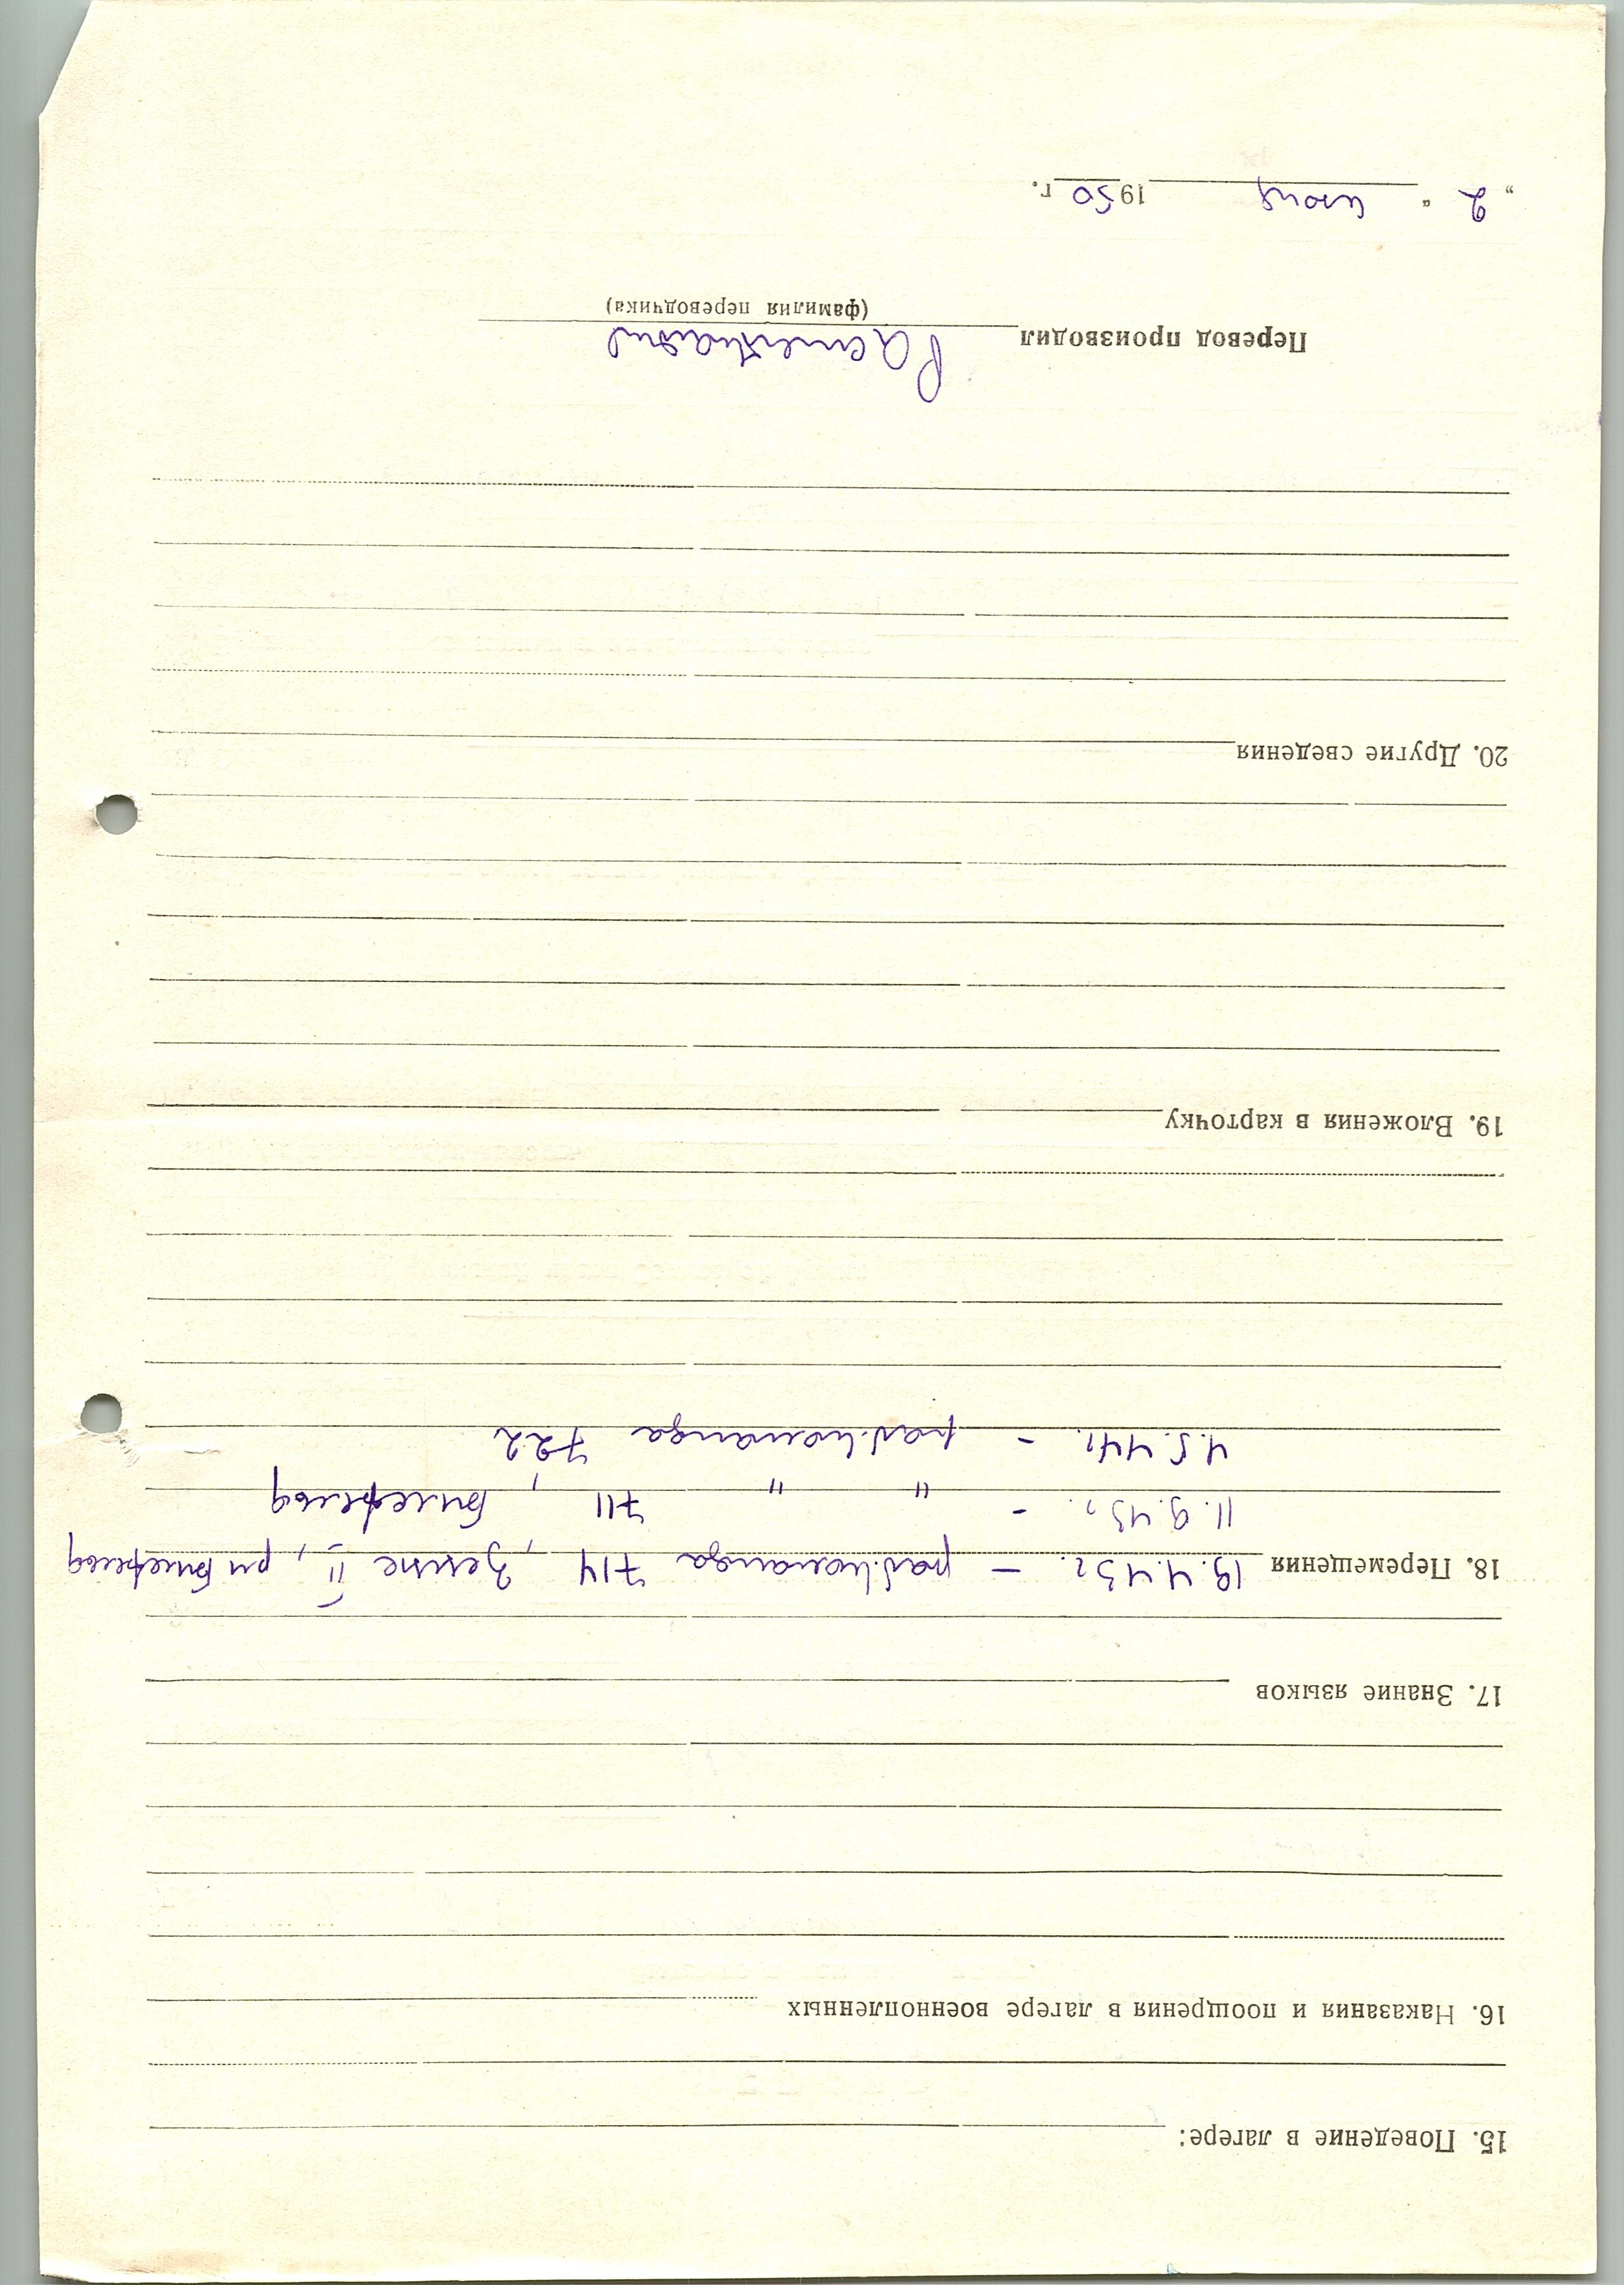 15. Поведение в лагере:
16. Наказания и поощрения в лагере военнопленных
17. Знание языков
18. Перемещения 19.4.43г. — раб.команда 714, Зенне II, рн Билефельд
11.9.43г. - " " 711, Билефельд
4.5.44г. - раб.команда 722
19. Вложения в карточку
20. Другие сведения
Перевод производил
(фамилия переводчика)
„2“ июня 1950 г.